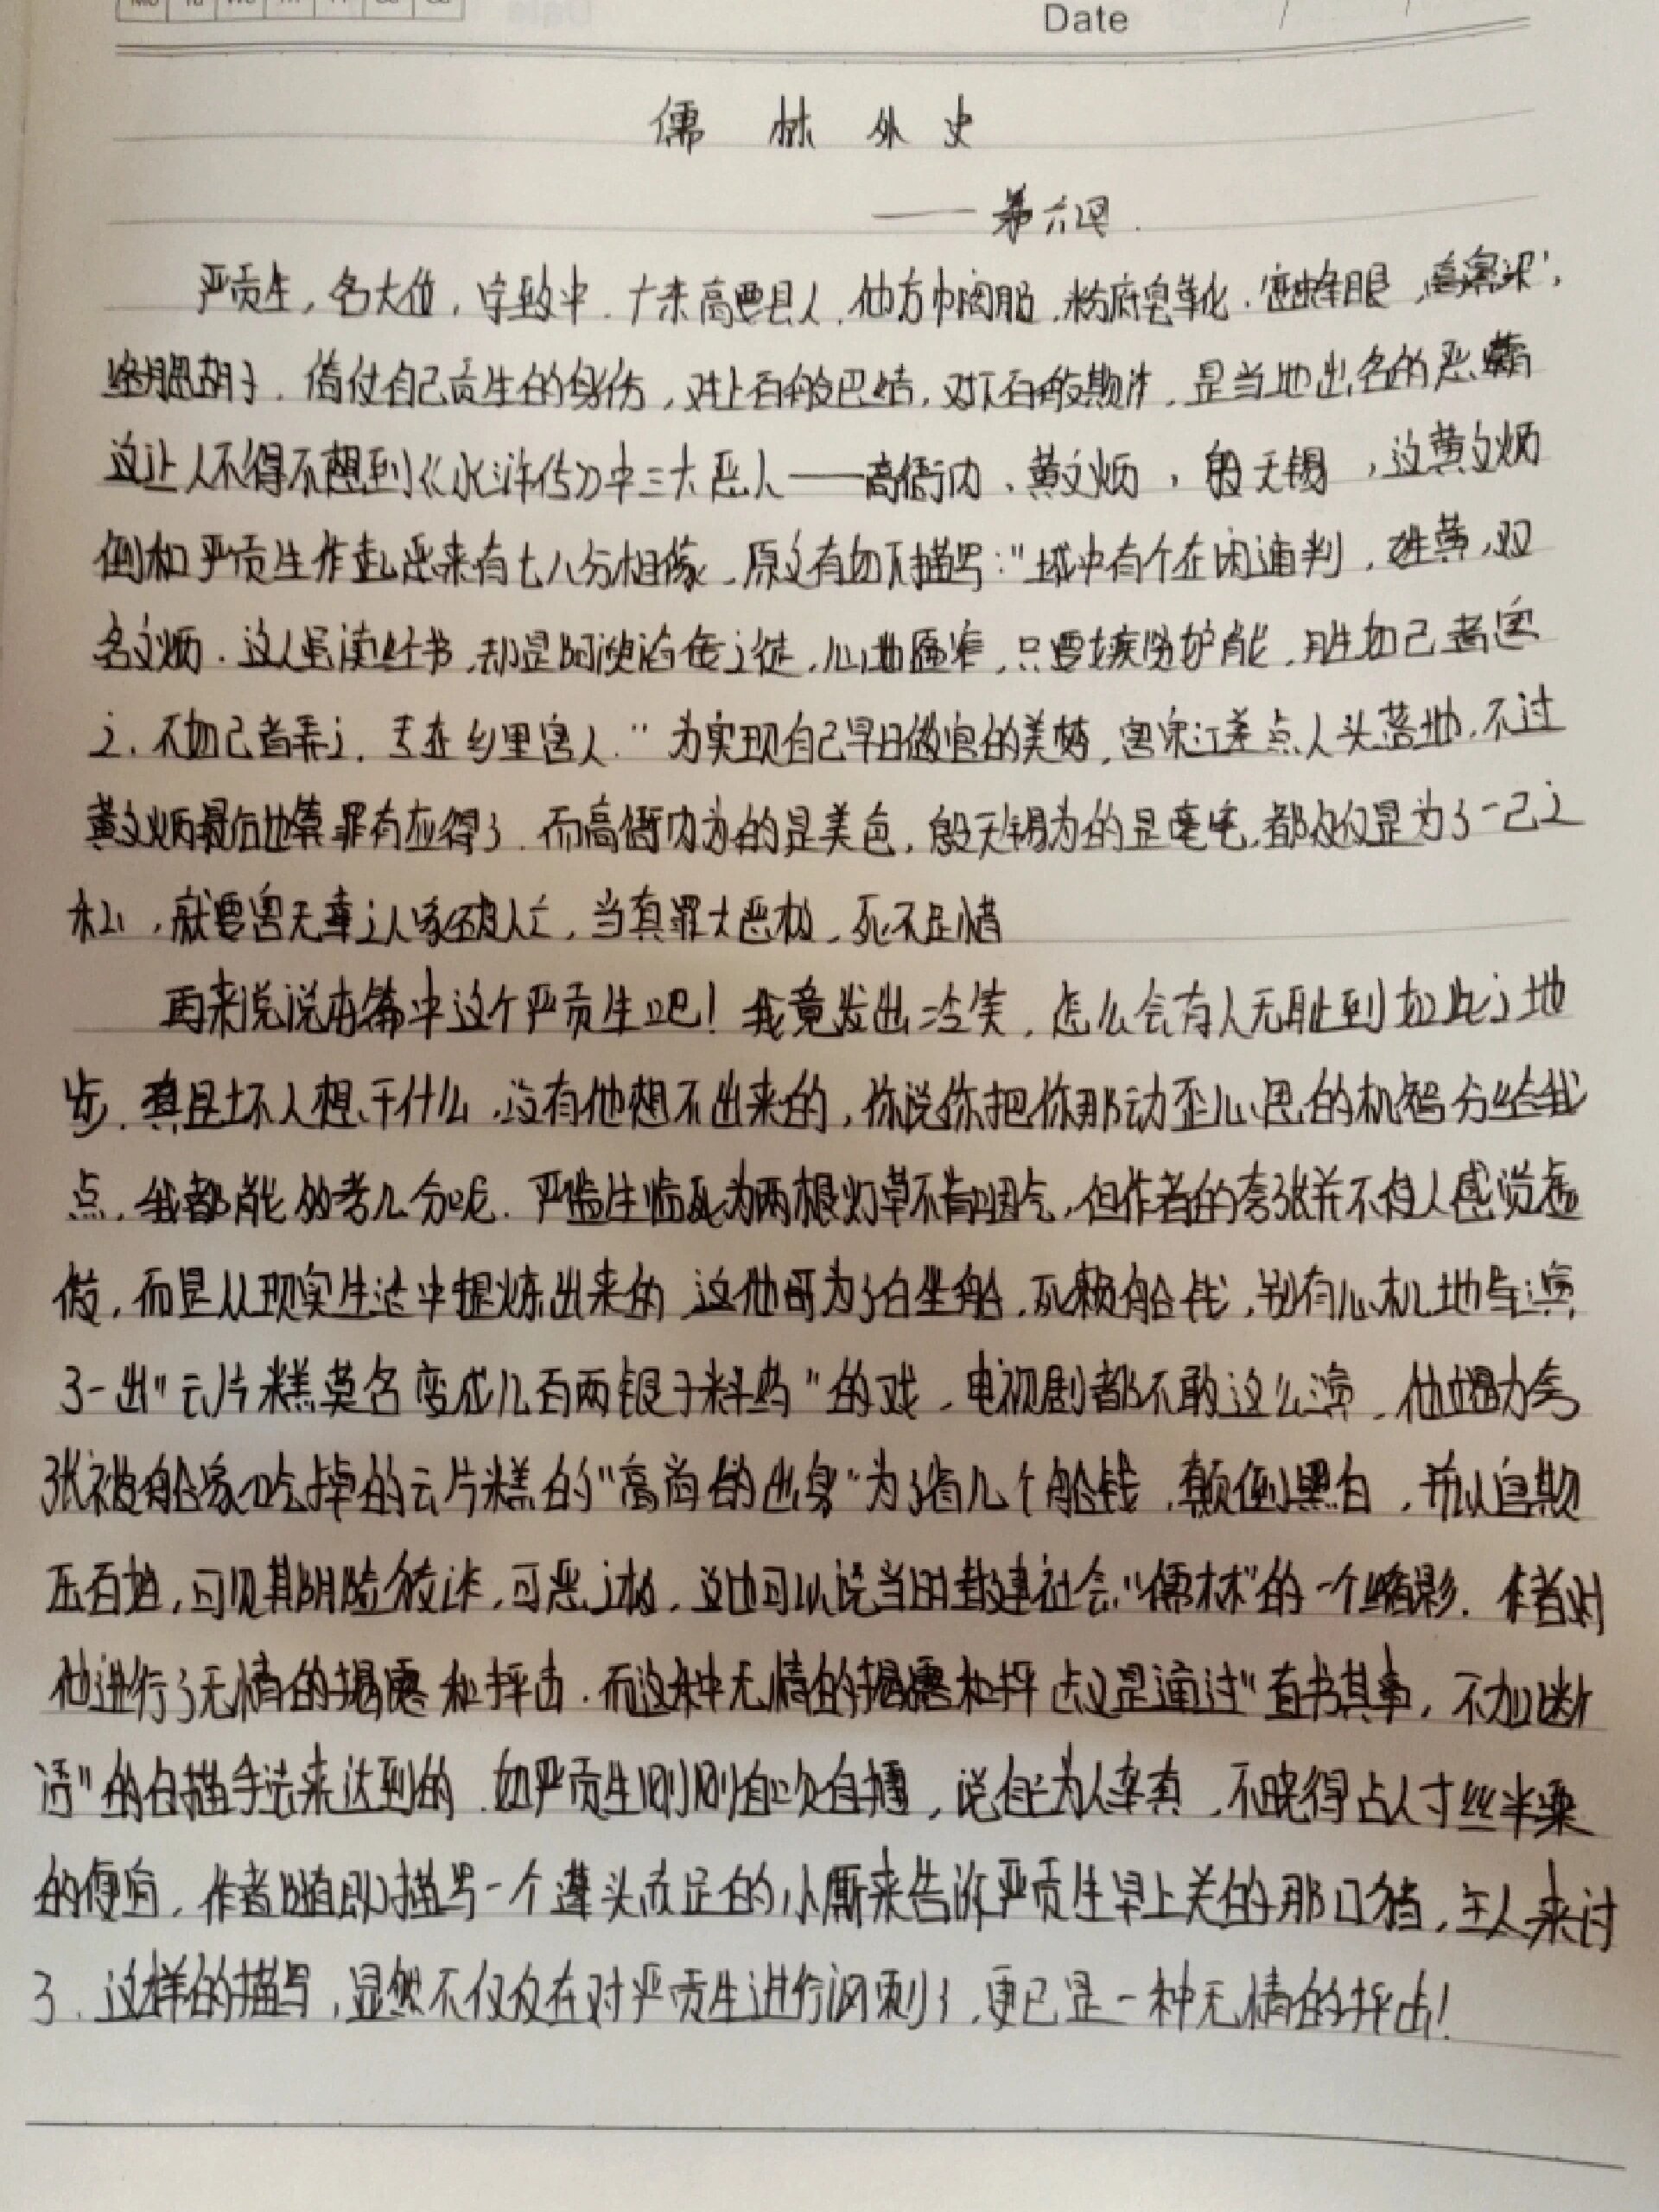 Mo Tu We Th Fr Sa Su
Date
儒林外史
——第六回.
严贡生,名大位,字致中.广东高要县人.他方巾阔服,粉底皂靴,蜜蜂眼,高鼻梁,
络腮胡子.倚仗自己贡生的身份,对上百般巴结,对下百般欺诈,是当地出名的恶霸
这让人不得不想到《水浒传》中三大恶人——高衙内、黄文炳,殷天锡,这黄文炳
倒和严贡生作起恶来有七八分相像.原文有如下描写:“城中有个在闲通判,姓黄,双
名文炳.这人虽读经书,却是阿谀谄佞之徒,心地匾窄,只要嫉贤妒能,胜如己者害
之,不如己者弄之,专在乡里害人.”为实现自己早日做官的美梦,害宋江差点人头落地,不过
黄文炳最后也算罪有应得了.而高衙内为的是美色,殷天锡为的是宅,都仅仅是为了一己之
私,就要害无辜之人家破人亡,当真罪大恶极,死不足惜
再来说说本篇中这个严贡生吧!我竟发出冷笑,怎么会有人无耻到如此之地
步.真是坏人想干什么,没有他想不出来的,你说你把你那动歪心思的机智分给我
点,我都能多考几分呢.严监生临死为两根灯草不肯咽气,但作者的夸张并不使人感觉虚
假,而是从现实生活中提炼出来的 这他哥为了白坐船,死赖船钱,别有心机地导演
了一出“云片糕莫名变成几百两银子料药”的戏,电视剧都不敢这么演,他竭力夸
张被船家吃掉的云片糕的“高尚的出身”为了省几个船钱,颠倒黑白,并以官欺
压百姓,可见其阴险狡诈,可恶之极,这也可以说当时封建社会“儒林”的一个缩影.作者对
他进行了无情的揭露和抨击.而这种无情的揭露和抨击又是通过“直书其事,不加断
语”的白描手法来达到的.如严贡生刚刚自吹自擂,说自己为人率真,不晓得占人寸丝半粟
的便宜,作者随即描写一个蓬头赤足的小厮来告诉严贡生早上关的那口猪,主人来讨
了.这样的描写,显然不仅仅在对严贡生进行讽刺了,更已是一种无情的抨击!